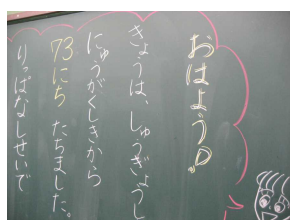 おはよう♪
きょうは、しゅうぎょうし
にゅうがくしきから
73にち たちました。
りっぱなしせいで